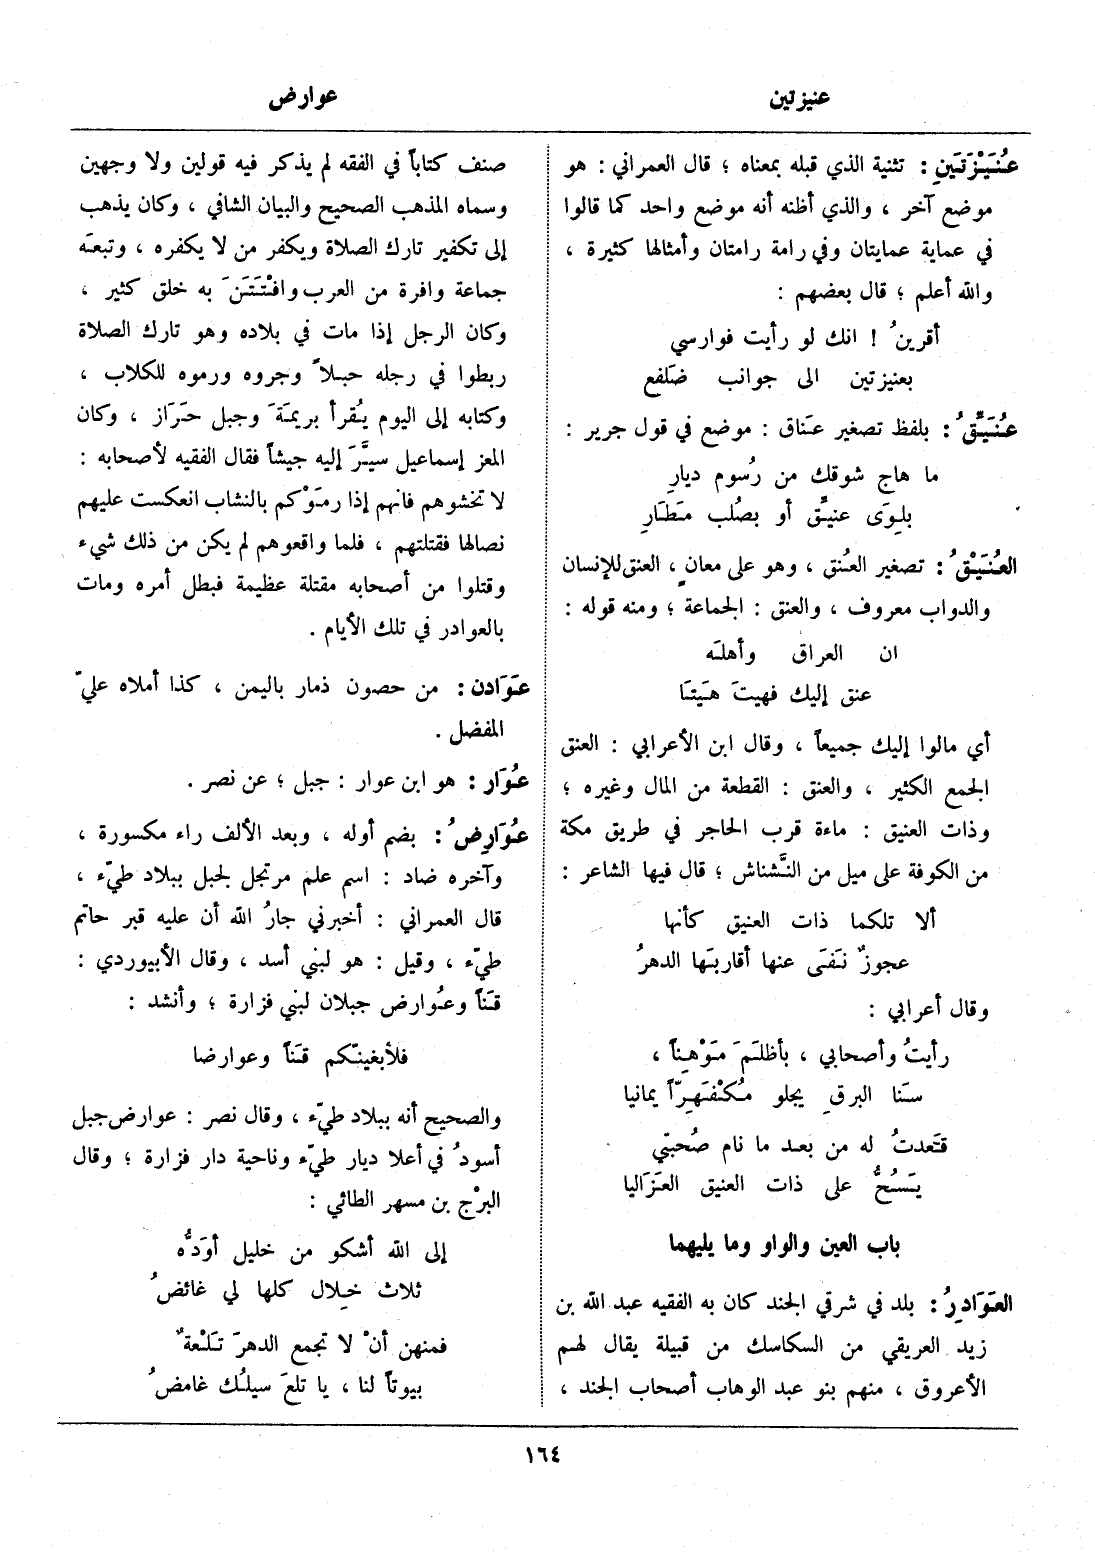 عنيزتين
عوارض
عُنَيْزَتَينِ : تثنية الذي قبله بمعناه ؛ قال العمراني : هو
موضع آخر ، والذي أظنه أنه موضع واحد كما قالوا
في عماية عمايتان وفي رامة رامتان وأمثالها كثيرة ،
والله أعلم ؛ قال بعضهم :
أقرينُ ! انك لو رأيت فوارسي
بعنيزتين الى جوانب ضَلفع
عُنَيِّقُ : بلفظ تصغير عَناق : موضع في قول جرير :
ما هاج شوقك من رُسوم ديارِ
بلِوَى عنيَّق أو بصُلب مَطَارِ
العُنَيْقُ : تصغير العُنق ، وهو على معانٍ ، العنق للإنسان
والدواب معروف ، والعنق : الجماعة ؛ ومنه قوله :
ان العراق وأهلَه
عنق إليك فهيتَ هَيتَا
أي مالوا إليك جميعاً ، وقال ابن الأعرابي : العنق
الجمع الكثير ، والعنق : القطعة من المال وغيره ؛
وذات العنيق : ماءة قرب الحاجر في طريق مكة
من الكوفة على ميل من النَّشناش ؛ قال فيها الشاعر :
ألا تلكما ذات العنيق كأنها
عجوزٌ نَفَى عنها أقاربَها الدهرُ
وقال أعرابي :
رأيتُ وأصحابي ، بأظلَمَ مَوْهِناً ،
سَنا البرقِ يجلو مُكْفَهِرّاً يمانيا
قعَدتُ له من بعد ما نام صُحبتي
يَسُحُّ على ذات العنيق العَزَاليا
باب العين والواو وما يليهما
العَوَادِرُ : بلد في شرقي الجند كان به الفقيه عبد الله بن
زيد العريقي من السكاسك من قبيلة يقال لهم
الأعروق ، منهم بنو عبد الوهاب أصحاب الجند ،
صنف كتاباً في الفقه لم يذكر فيه قولين ولا وجهين
وسماه المذهب الصحيح والبيان الشافي ، وكان يذهب
إلى تكفير تارك الصلاة ويكفر من لا يكفره ، وتبعَه
جماعة وافرة من العرب وافْتَتَنَ به خلق كثير ،
وكان الرجل إذا مات في بلاده وهو تارك الصلاة
ربطوا في رجله حبلاً وجروه ورموه للكلاب ،
وكتابه إلى اليوم يُقرأ بريمَةَ وجبل حَرَاز ، وكان
المعز إسماعيل سيَّرَ إليه جيشاً فقال الفقيه لأصحابه :
لا تخشوهم فانهم إذا رمَوْكم بالنشاب انعكست عليهم
نصالها فقتلتهم ، فلما واقعوهم لم يكن من ذلك شيء
وقتلوا من أصحابه مقتلة عظيمة فبطل أمره ومات
بالعوادر في تلك الأيام .
عَوَادن : من حصون ذمار باليمن ، كذا أملاه عليّ
المفضل .
عُوَار : هو ابن عوار : جبل ؛ عن نصر .
عُوَارِضُ : بضم أوله ، وبعد الألف راء مكسورة ،
وآخره ضاد : اسم علم مرتجل لجبل ببلاد طيّء ،
قال العمراني : أخبرني جارُ الله أن عليه قبر حاتم
طيّء ، وقيل : هو لبني أسد ، وقال الأبيوردي :
قَناً وعُوارض جبلان لبني فزارة ؛ وأنشد :
فلأبغينّكم قَناً وعوارضا
والصحيح أنه ببلاد طيّء ، وقال نصر : عوارض جبل
أسودُ في أعلا ديار طيّء وناحية دار فزارة ؛ وقال
البرْج بن مسهر الطائي :
إلى الله أشكو من خليل أوَدُّه
ثلاث خِلال كلها لي غائضُ
فمنهن أنْ لا تجمع الدهرَ تَلْعةٌ
بيوتاً لنا ، يا تلعَ سيلُك غامضُ
١٦٤